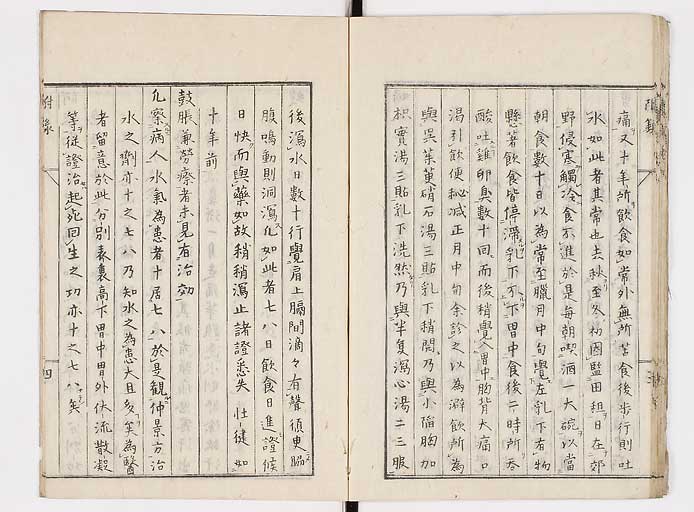 痛又十年所飲食如常外無所苦食後步行則吐
水如此者其常也去秋至冬初因監田租日在郊
野侵寒觸冷食不進於是每朝喫酒一大碗以當
朝食數十日以為常至臘月中旬覺左乳下有物
懸著飲食皆停滯乳下不下胃中食後二時所吞
酸吐雞卵臭數十回而後稍覺入胃中胸背大痛口
渴引飲便秘減正月中旬余診之以為澼飲所為
與吳茱萸硝石湯三貼乳下稍開乃與小陷胸加
枳實湯三貼乳下洗然乃與半夏瀉心湯二三服
後瀉水日數十行覺肩上膈間滴々有聲須臾腸
腹鳴動則洞瀉凡如此者七八日飲食日進證候
日快而與藥如故稍稍瀉止諸證悉失壯健如
十年前
鼓脹兼勞瘵者未見有治效
凡察病人水氣為患者十居七八於是觀仲景方治
水之劑亦十之七八乃知水之為患大且多矣為醫
者留意於此分別表裏高下胃中胃外伏流散凝
等從證治起死回生之功亦十之七八矣
附錄
四